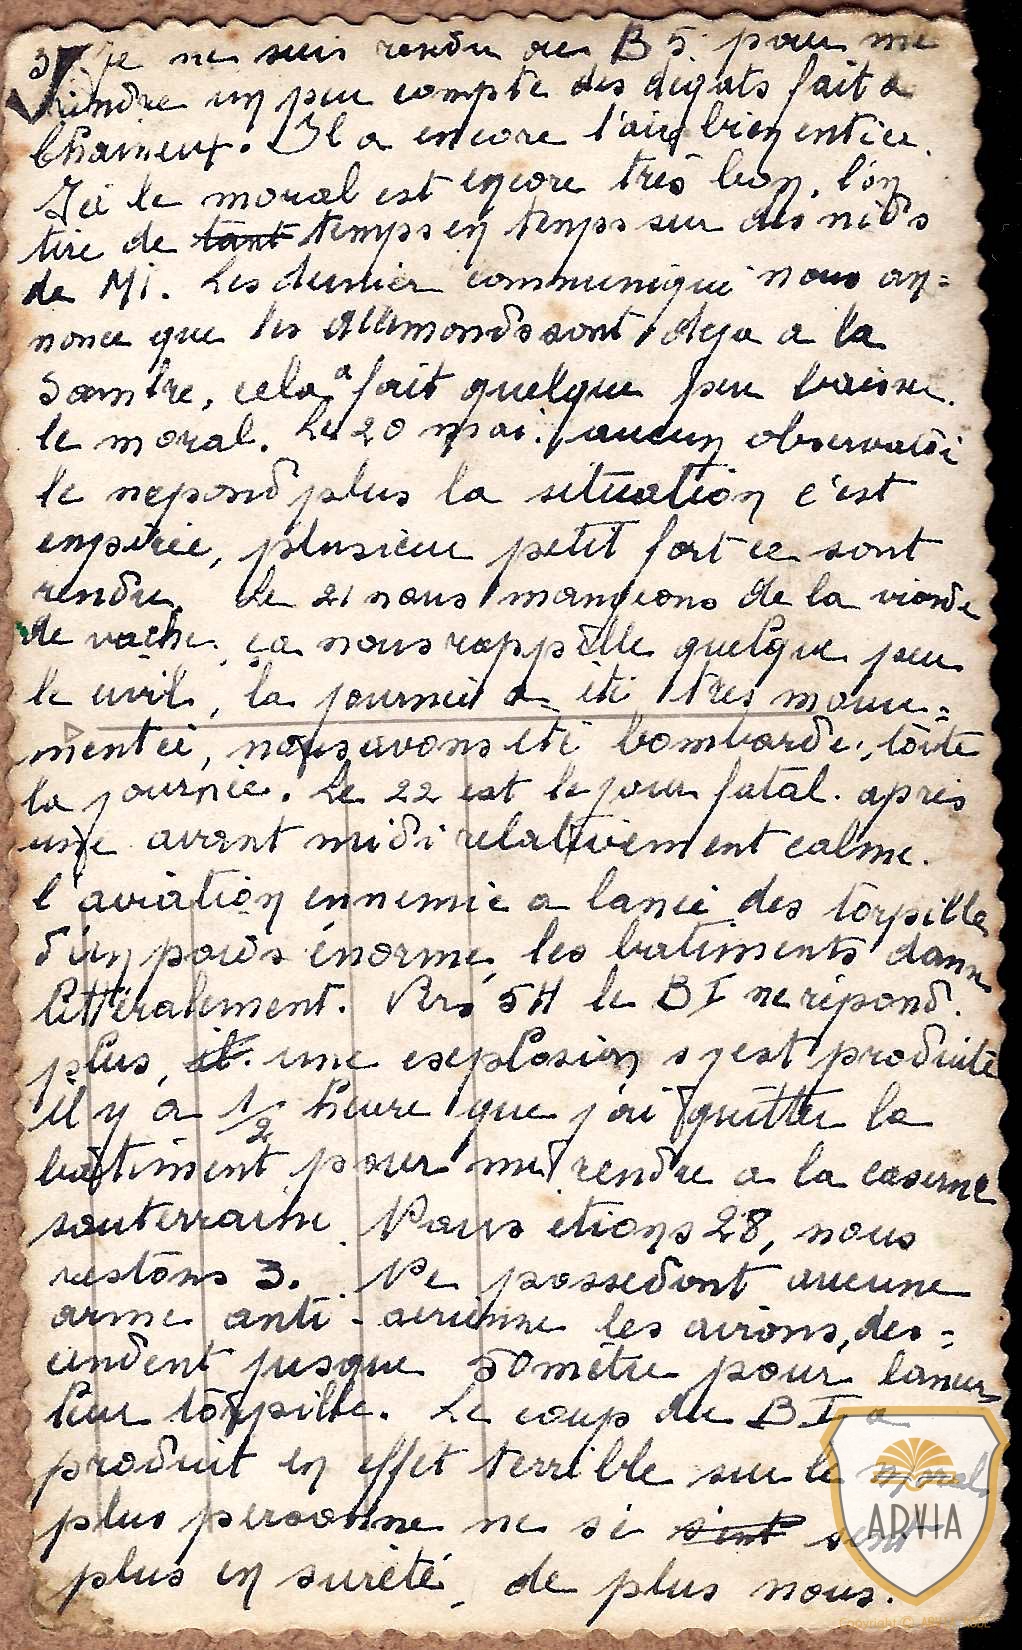 3) Je me suis rendu au B 5. pour me
rendre un peu compte des dégats fait a
Charneux. Il a encore l'air bien entier.
Ici le moral est encore très bon, l'on
tire de tant temps en temps sur des nids
de Mi. Les dernier communiqué nous an=
nonce que les allemands sont deja a la
Sambre, cela a fait quelque peu baisser
le moral. Le 20 mai. aucun observatoi
le repond plus la situation c'est
empirée, plusieur petit fort ce sont
rendu. Le 21 nous mangeons de la viande
de vache, ça nous rappelle quelque peu
le civil, la journée a été très mouve=
mentée, nous avons été bombardé, toute
la journée. Le 22 est le jour fatal. après
une avant midi relativement calme.
l'aviation ennemie a lancé des torpille
d'un poids énorme, les batiments danse
littéralement. Vers 5H le B I ne répond.
plus, il une esplosion s'y est produite
il y a 1/2 heure que j'ai quitter le
bâtiment pour me rendre a la caserne
souterraine. Nous étions 28, nous
restons 3. Ne possedant aucune
arme anti-aerienne les avions, des=
cendent jusque 50 mètre pour lancer
leur torpille. Le coup du B I a
produit en effet terrible sur le moral,
plus personne ne si sent sent
plus en sureté, de plus nous.
ARVIA